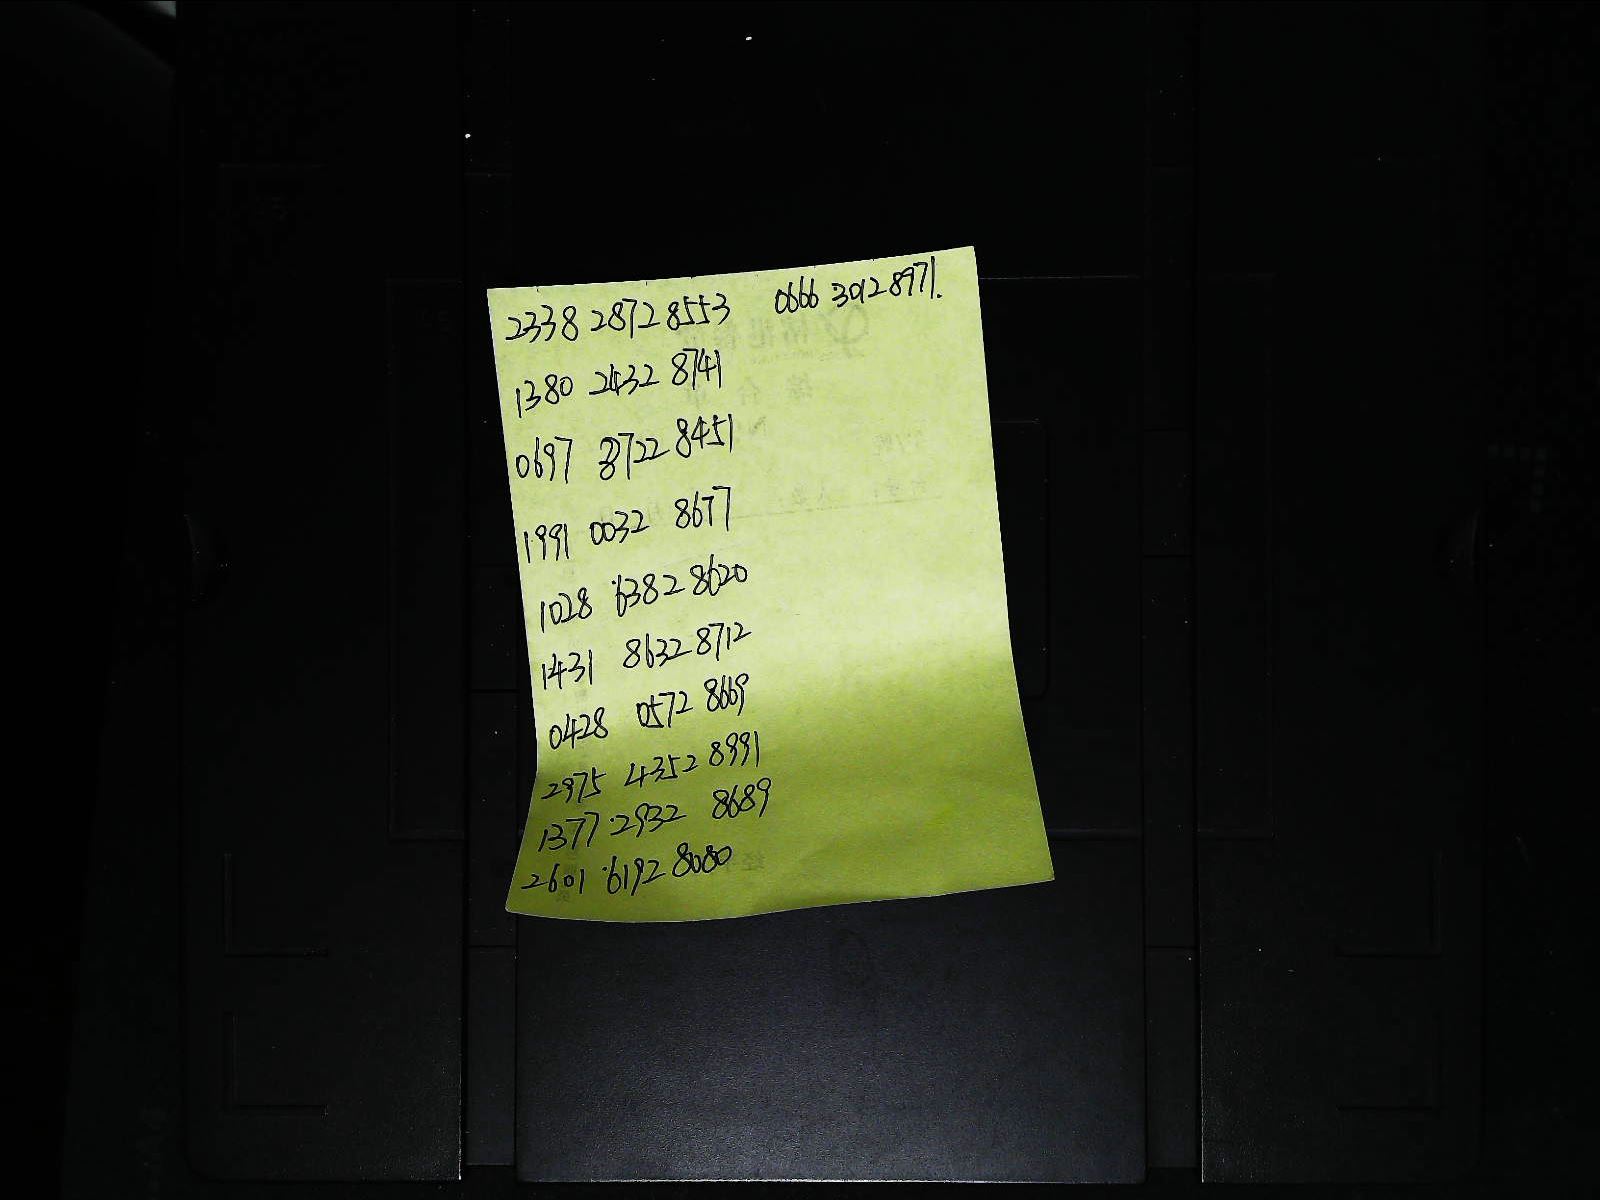 2338 2872 8553 0666 3012 8971.
1380 2432 8741
0697 3722 8451
1991 0032 8677
1028 6382 8620
1431 8632 8712
0428 0572 8669
2975 4352 8991
1377 2932 8689
2601 6192 8080